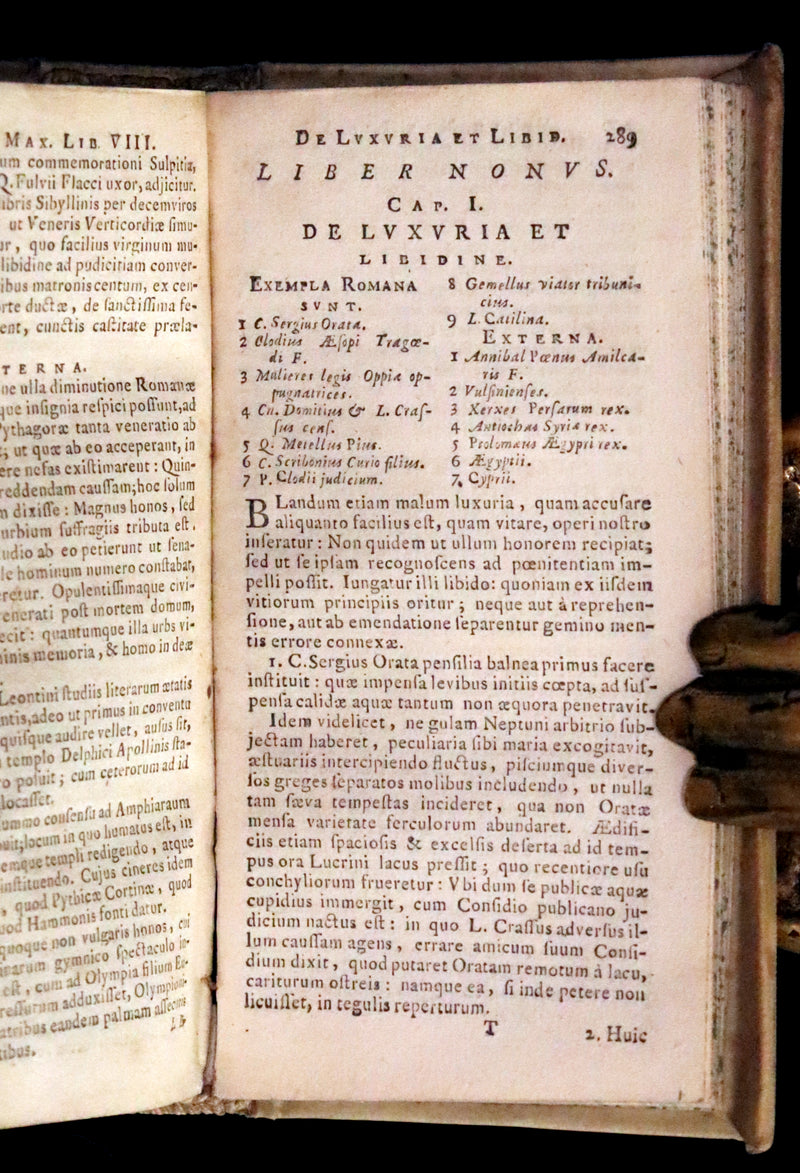 Max. Lib VIII.
um commemorationi Sulpitiæ,
Q. Fulvii Flacci uxor, adjicitur.
ibris Sibyllinis per decemviros
ut Veneris Verticordiæ ſimu-
ur, quo facilius virginum mu-
libidine ad pudicitiam conver-
ibus matronis centum, ex cen-
rte ductæ, de ſanctiſſima fe-
ent, cunctis caſtitate præla-
TERNA.
ne ulla diminutione Romanæ
que inſignia reſpici poſſunt, ad
Pythagoræ tanta veneratio ab
t, ut quæ ab eo acceperant, in
ere nefas exiſtimarent: Quin-
reddendam cauſſam; hoc ſolum
m dixiſſe: Magnus honos, ſed
urbium ſuffragiis tributa eſt.
udio ab eo petierunt ut ſena-
le hominum numero conſtabat,
retur. Opulentiſſimaque civi-
enerati poſt mortem domum,
ecit: quantumque illa urbs vi-
inis memoria, & homo in deæ
Leontini ſtudiis literarum ætatis
ntis, adeo ut primus in conventu
quiſque audire vellet, auſus ſit,
templo Delphici Apollinis ſta-
o poſuit; cum ceterorum ad id
locaſſet.
ummo conſenſu ad Amphiaraum
uit, locum in quo humatus eſt, in
emque templi redigendo, atque
inſtituendo. Cujus cineres idem
, quod Pythicæ Cortinæ, quod
uod Hammonis fonti datur.
quoque non vulgaris honos, cui
rarum gymnico ſpectaculo in-
eſt, cum ad Olympia filium Eu-
reſſurum adduxiſſet, Olympioni-
atribus eandem palmam aſſecutis
tibus.
De Lvxvria et Libid. 289
LIBER NONVS.
Cap. I.
DE LVXVRIA ET
LIBIDINE.
Exempla Romana
svnt.
1 C. Sergius Orata.
2 Clodius Æſopi Tragœ-
di F.
3 Mulieres legis Oppia op-
pugnatrices.
4 Cn. Domitius & L. Craſ-
ſus cenſ.
5 Q. Metellus Pius.
6 C. Scribonius Curio filius.
7 P. Clodii judicium.
8 Gemellus viator tribuni-
cius.
9 L. Catilina.
Externa.
1 Annibal Pœnus Amilca-
ris F.
2 Vulſinienſes.
3 Xerxes Perſarum rex.
4 Antiochus Syriæ rex.
5 Ptolomæus Ægypti rex.
6 Ægyptii.
7 Cyprii.
BLandum etiam malum luxuria, quam accuſare
aliquanto facilius eſt, quam vitare, operi noſtro
inſeratur: Non quidem ut ullum honorem recipiat;
ſed ut ſe ipſam recognoſcens ad pœnitentiam im-
pelli poſſit. Iungatur illi libido: quoniam ex iiſdem
vitiorum principiis oritur; neque aut à reprehen-
ſione, aut ab emendatione ſeparentur gemino men-
tis errore connexæ.
1. C. Sergius Orata penſilia balnea primus facere
inſtituit: quæ impenſa levibus initiis cœpta, ad ſuſ-
penſa calidæ aquæ tantum non æquora penetravit.
Idem videlicet, ne gulam Neptuni arbitrio ſub-
jectam haberet, peculiaria ſibi maria excogitavit,
æſtuariis intercipiendo fluctus, piſciumque diver-
ſos greges ſeparatos molibus includendo, ut nulla
tam ſæva tempeſtas incideret, qua non Oratæ
menſa varietate ferculorum abundaret. Ædifi-
ciis etiam ſpacioſis & excelſis deſerta ad id tem-
pus ora Lucrini lacus preſſit; quo recentiore uſu
conchyliorum frueretur: Vbi dum ſe publicæ aquæ
cupidius immergit, cum Conſidio publicano ju-
dicium nactus eſt: in quo L. Craſſus adverſus il-
lum cauſſam agens, errare amicum ſuum Conſi-
dium dixit, quod putaret Oratam remotum à lacu,
cariturum oſtreis: namque ea, ſi inde petere non
licuiſſet, in tegulis reperturum.
T
2. Huic